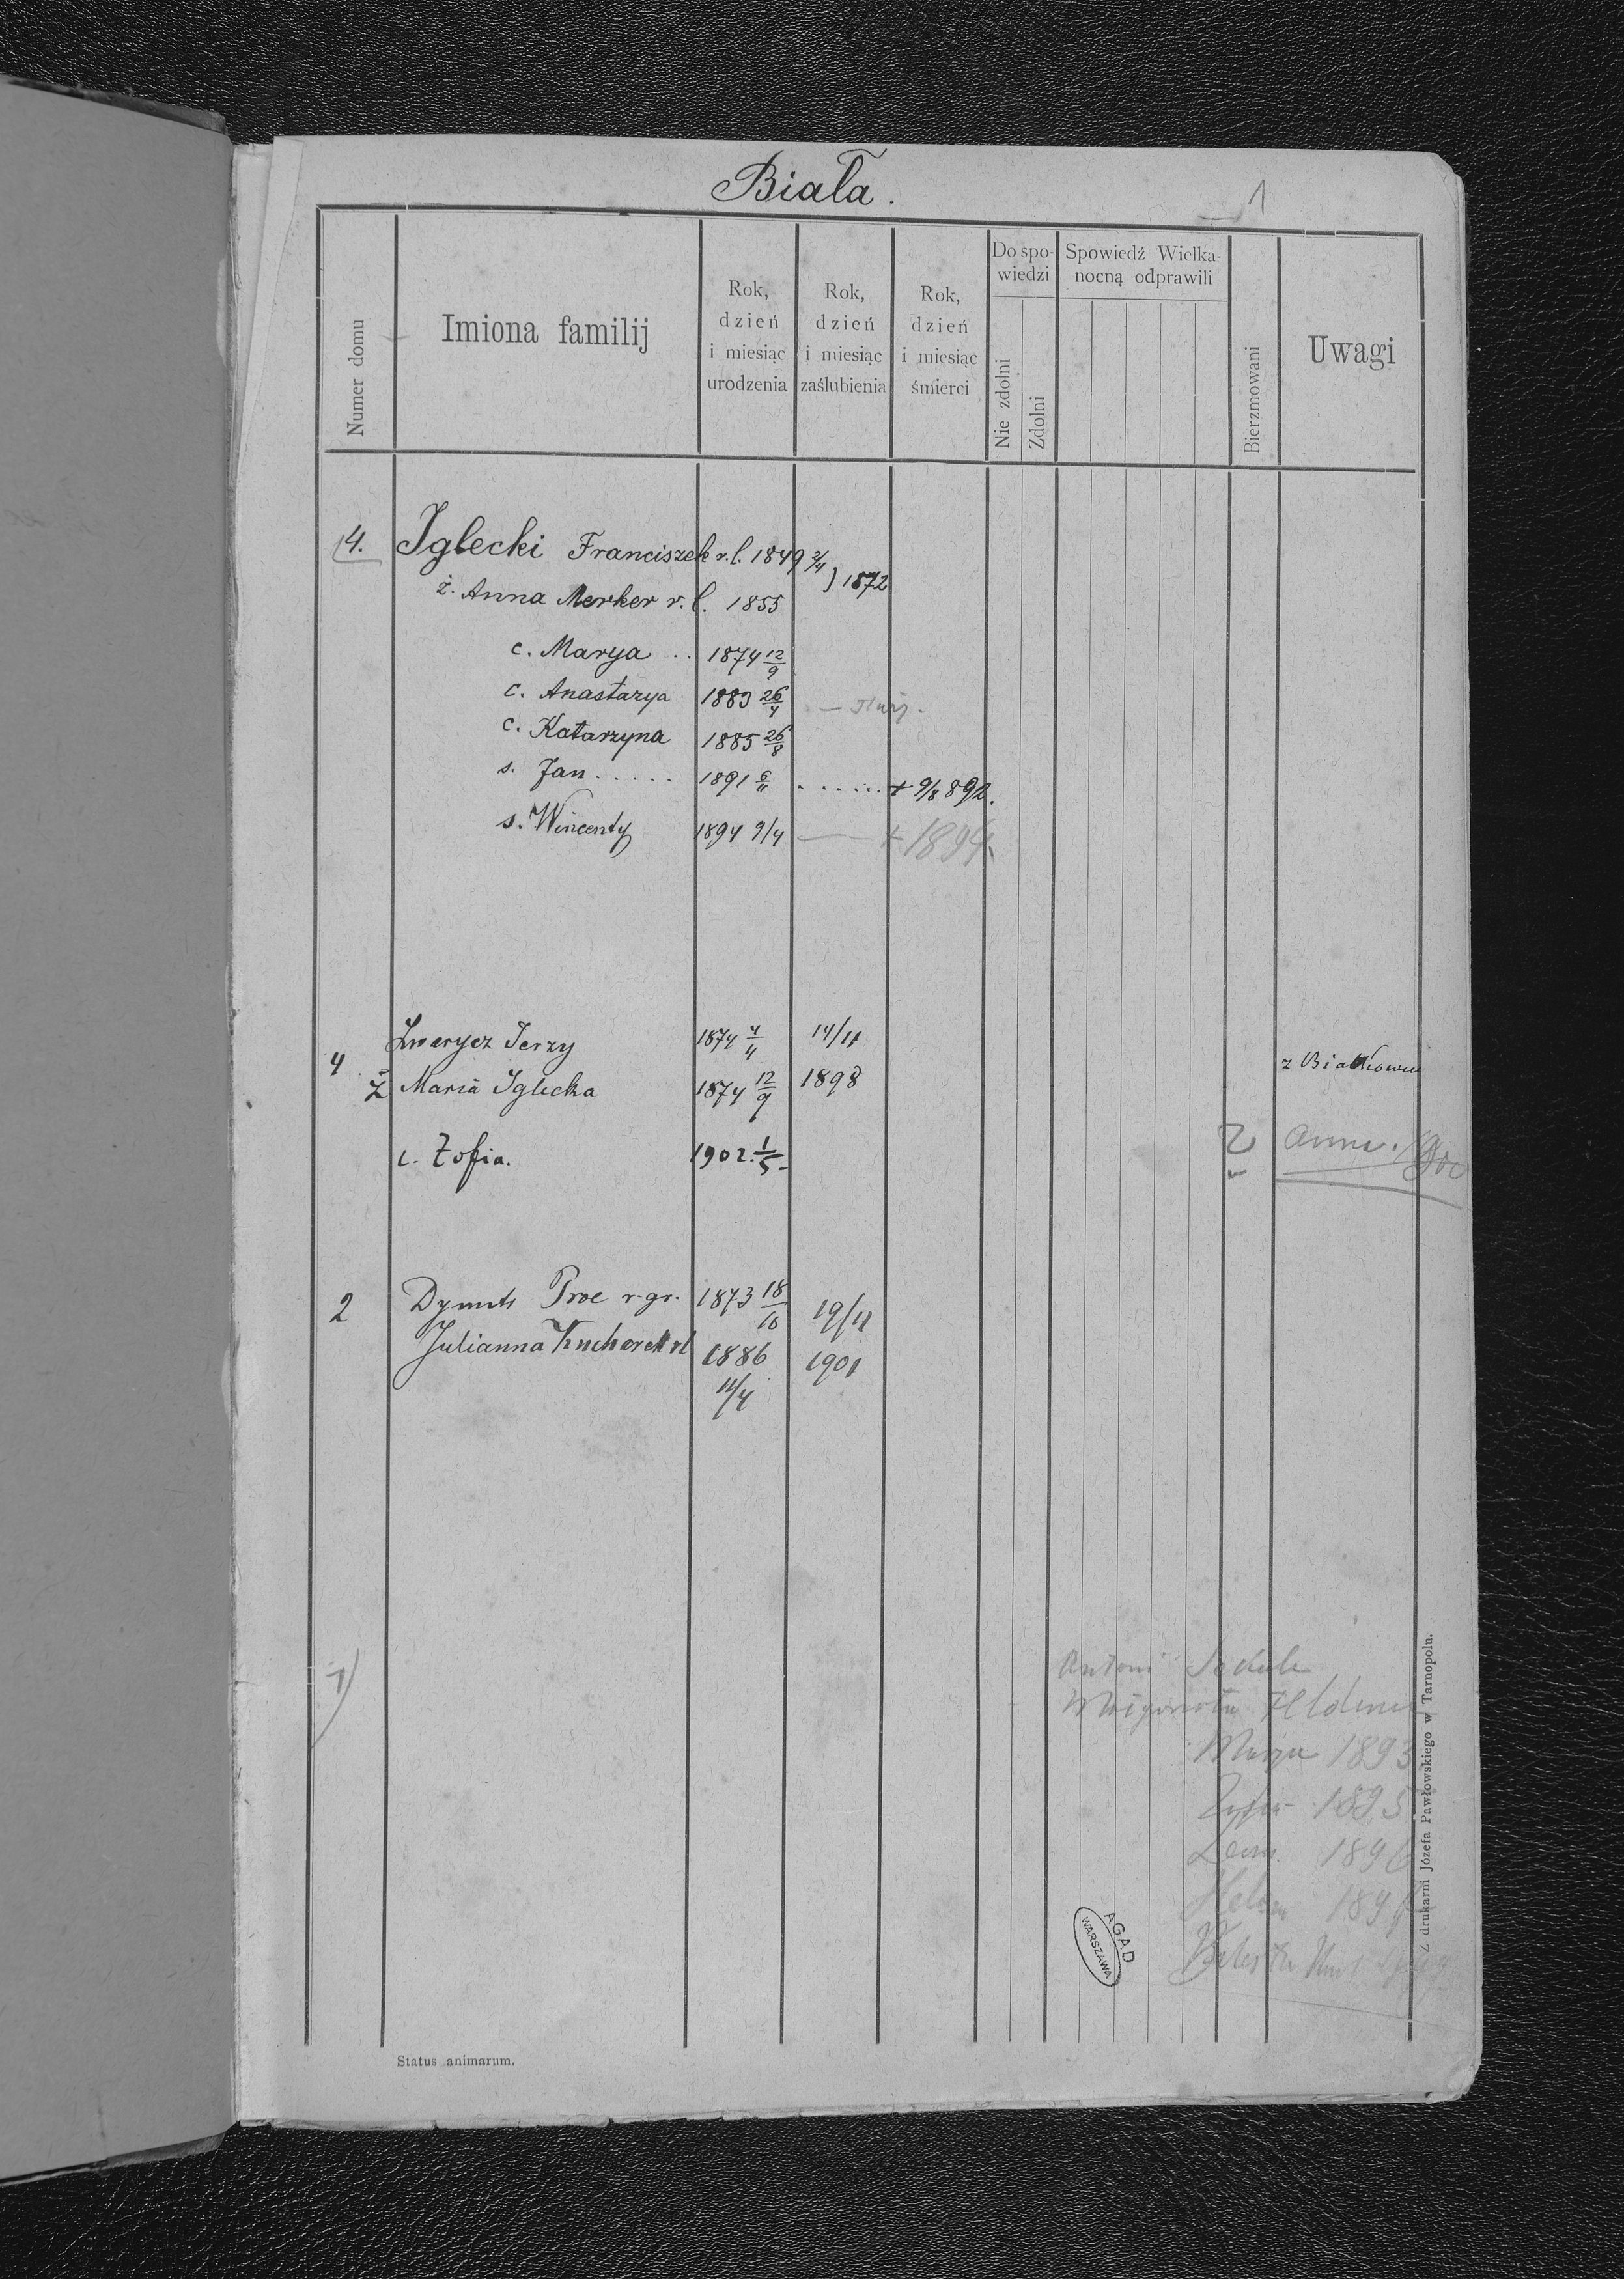 Biała.
1
Numer domu
Imiona familij
Rok,
dzień
i miesiąc
urodzenia
Rok,
dzień
i miesiąc
zaślubienia
Rok,
dzień
i miesiąc
śmierci
Do spo-
wiedzi
Nie zdolni
Zdolni
Spowiedź Wielka-
nocną odprawili
Bierzmowani
Uwagi
4. Iglecki Franciszek r.l. 1849 2/4
ż. Anna Merker r.l. 1855 } 1872
c. Marya .. 1874 12/9
c. Anastazya 1883 26/4
c. Katarzyna 1885 26/8
s. Jan ..... 1891 6/11 ...... + 9/8 892.
s. Wincenty 1894 9/4 — + 1894
Zwarycz Jerzy 1874 4/4 14/11
4 z
ż Maria Iglecka 1874 12/9 1898
c. Zofia. 1902. 1/5
2 1873 18/10 19/11
Julianna 1886 1901
11/4
1)
Antoni
1893
1895
189
189
AGAD
WARSZAWA
Z drukarni Józefa Pawłowskiego w Tarnopolu.
Status animarum.